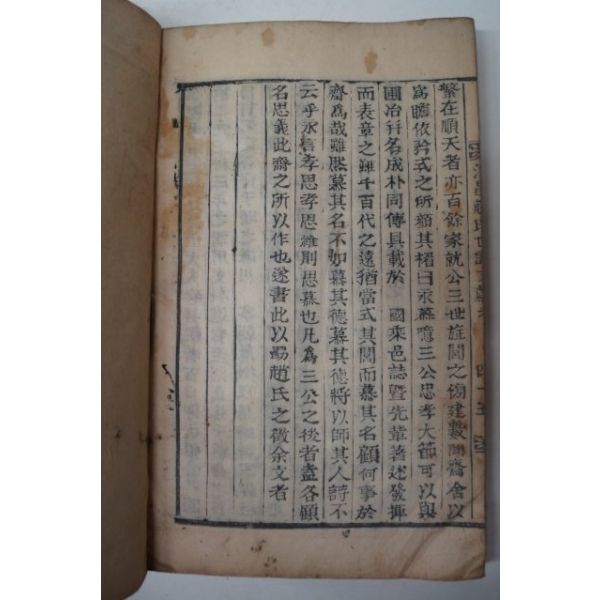 繁在順天者亦百餘家就公三世旌閭之傍建數間齋舍以
寓瞻依矜式之所額其楣曰永慕噫三公忠孝大節可以與
圃冶幷名成朴同傳具載於 國乘邑誌曁先輩著述發揮
而表章之雖千百代之遠猶當式其閭而慕其名顧何事於
齋爲哉雖然慕其名不如慕其德慕其德將以師其人詩不
云乎永言孝思孝思維則思慕也凡爲三公之後者盍各顧
名思義此齋之所以作也遂書此以勗趙氏之徵余文者
趙氏世譜
四十五